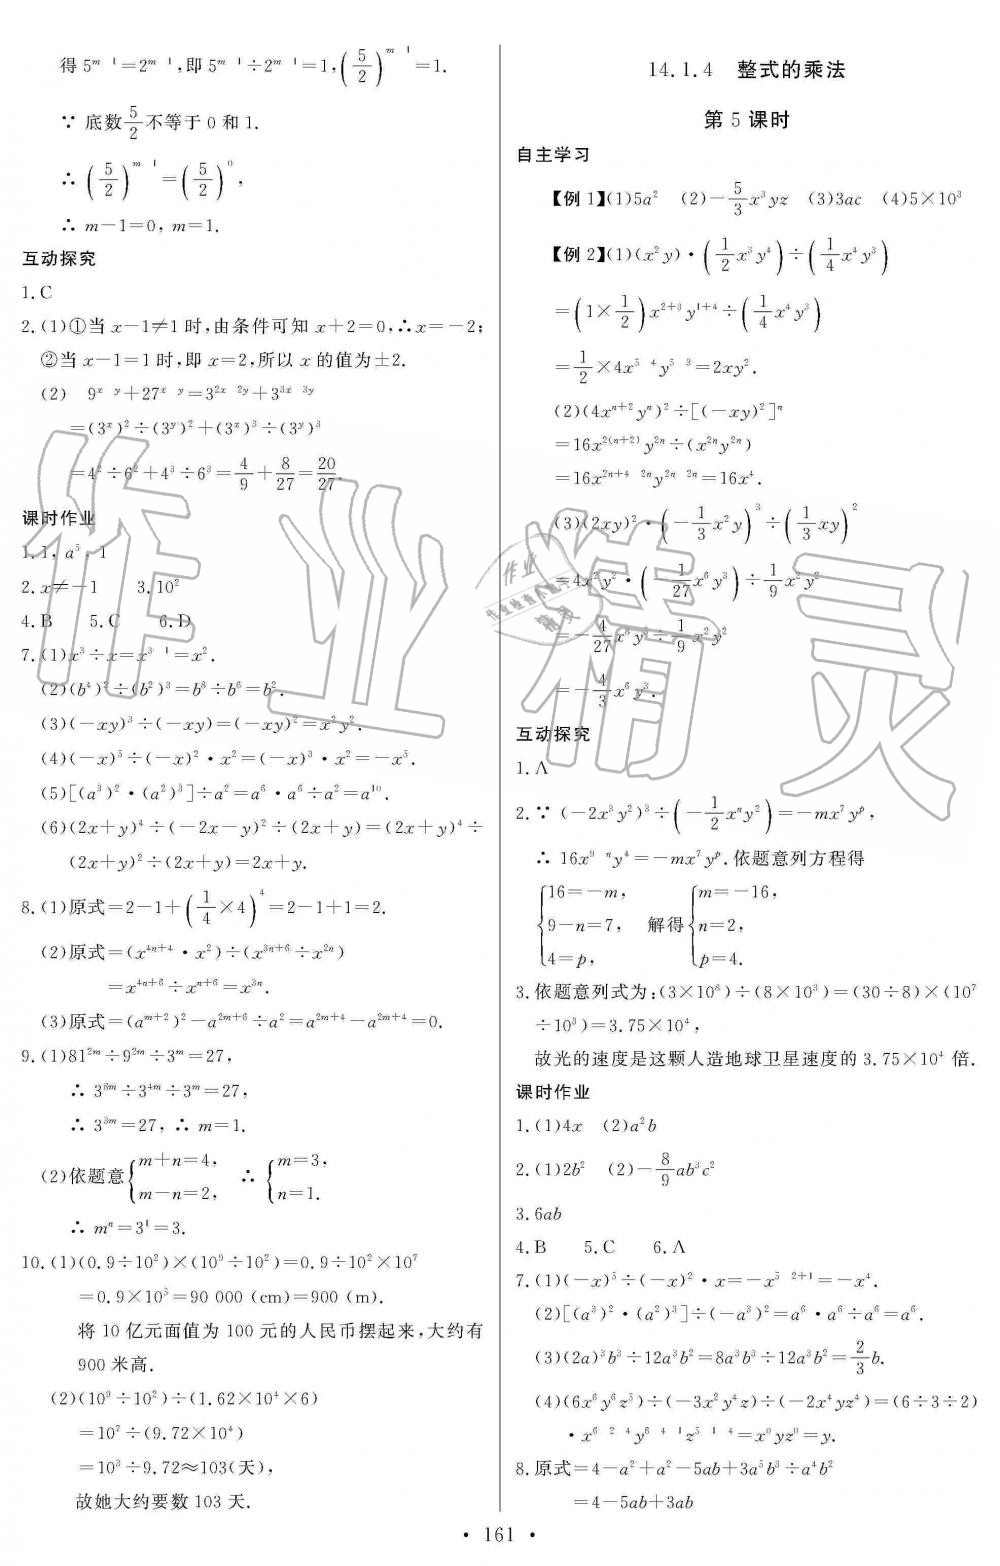 得5^{m 1}=2^{m 1},即5^{m 1}÷2^{m 1}=1,(5/2)^{m 1}=1.
∵ 底数5/2不等于0和1.
∴ (5/2)^{m 1}=(5/2)^0,
∴ m-1=0, m=1.
互动探究
1.C
2.(1)①当x-1≠1时,由条件可知x+2=0,∴x=-2;
②当x-1=1时,即x=2,所以x的值为±2.
(2) 9^{x y}+27^{x y}=3^{2x 2y}+3^{3x 3y}
=(3^x)²÷(3^y)²+(3^x)³÷(3^y)³
=4²÷6²+4³÷6³=4/9+8/27=20/27.
课时作业
1.1, a⁵, 1
2.x≠-1 3.10²
4.B 5.C 6.D
7.(1)x³÷x=x^{3 1}=x².
(2)(b⁴)²÷(b²)³=b⁸÷b⁶=b².
(3)(-xy)³÷(-xy)=(-xy)²=x²y².
(4)(-x)⁵÷(-x)²·x²=(-x)³·x²=-x⁵.
(5)[(a³)²·(a²)³]÷a²=a⁶·a⁶÷a²=a¹⁰.
(6)(2x+y)⁴÷(-2x-y)²÷(2x+y)=(2x+y)⁴÷
(2x+y)²÷(2x+y)=2x+y.
8.(1)原式=2-1+(1/4×4)⁴=2-1+1=2.
(2)原式=(x^{4n+4}·x²)÷(x^{3n+6}÷x^{2n})
=x^{4n+6}÷x^{n+6}=x^{3n}.
(3)原式=(a^{m+2})²-a^{2m+6}÷a²=a^{2m+4}-a^{2m+4}=0.
9.(1)81^{2m}÷9^{2m}÷3^m=27,
∴ 3^{8m}÷3^{4m}÷3^m=27,
∴ 3^{3m}=27,∴ m=1.
(2)依题意{m+n=4, m-n=2, ∴ {m=3, n=1.
∴ m^n=3¹=3.
10.(1)(0.9÷10²)×(10⁹÷10²)=0.9÷10²×10⁷
=0.9×10⁵=90 000 (cm)=900 (m).
将10亿元面值为100元的人民币摆起来,大约有
900米高.
(2)(10⁹÷10²)÷(1.62×10⁴×6)
=10⁷÷(9.72×10⁴)
=10³÷9.72≈103(天),
故她大约要数103天.
14.1.4 整式的乘法
第5课时
自主学习
【例1】(1)5a² (2)-5/3x³yz (3)3ac (4)5×10³
【例2】(1)(x²y)·(1/2x³y⁴)÷(1/4x⁴y³)
=(1×1/2)x^{2+3}y^{1+4}÷(1/4x⁴y³)
=1/2×4x^{5 4}y^{5 3}=2xy².
(2)(4x^{n+2}y^n)²÷[(-xy)²]^n
=16x^{2(n+2)}y^{2n}÷(x^{2n}y^{2n})
=16x^{2n+4 2n}y^{2n 2n}=16x⁴.
(3)(2xy)²·(-1/3x²y)³÷(1/3xy)²
=4x²y²·(-1/27x⁶y³)÷1/9x²y²
=-4/27x⁸y⁵÷1/9x²y²
=-4/3x⁶y³.
互动探究
1.A
2.∵ (-2x³y²)³÷(-1/2x^ny²)=-mx⁷y^p,
∴ 16x^{9 n}y⁴=-mx⁷y^p.依题意列方程得
{16=-m, 9-n=7, 4=p, 解得{m=-16, n=2, p=4.
3.依题意列式为:(3×10⁸)÷(8×10³)=(30÷8)×(10⁷
÷10³)=3.75×10⁴,
故光的速度是这颗人造地球卫星速度的3.75×10⁴倍.
课时作业
1.(1)4x (2)a²b
2.(1)2b² (2)-8/9ab³c²
3.6ab
4.B 5.C 6.A
7.(1)(-x)⁵÷(-x)²·x=-x^{5 2+1}=-x⁴.
(2)[(a³)²·(a²)³]÷(-a³)²=a⁶·a⁶÷a⁶=a⁶.
(3)(2a)³b³÷12a³b²=8a³b³÷12a³b²=2/3b.
(4)(6x⁶y⁶z⁵)÷(-3x²y⁴z)÷(-2x⁴yz⁴)=(6÷3÷2)
·x^{6 2 4}y^{6 4 1}z^{5 1 4}=x⁰yz⁰=y.
8.原式=4-a²+a²-5ab+3a⁵b³÷a⁴b²
=4-5ab+3ab
· 161 ·
作业精灵
作业
作业检查小助手
精灵